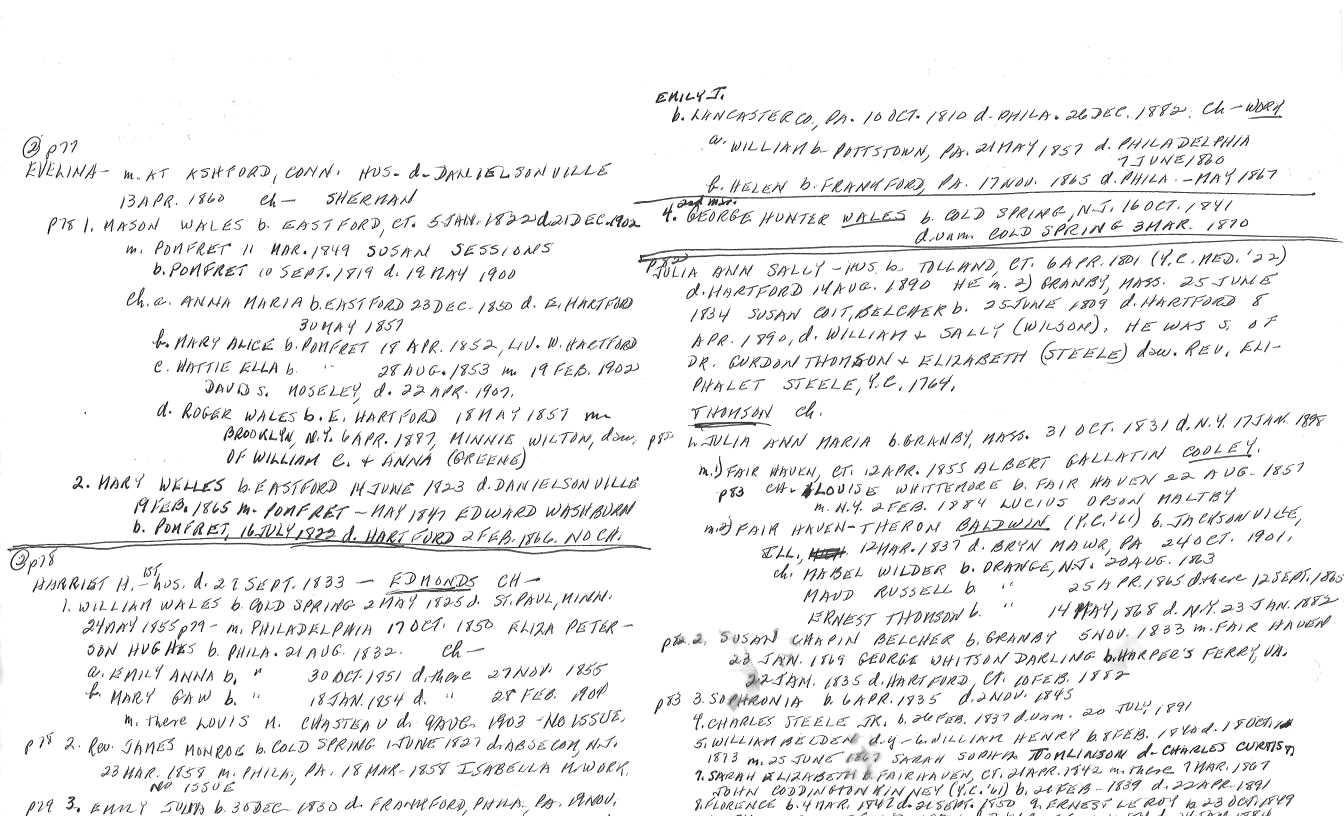 ② p77
EVELINA - m. AT ASHFORD, CONN. HUS. d. DANIELSONVILLE
13 APR. 1860 ch - SHERMAN
p78 1. MASON WALES b. EASTFORD, CT. 5 JAN. 1822 d. 21 DEC. 1902
m. POMFRET 11 MAR. 1849 SUSAN SESSIONS
b. POMFRET 10 SEPT. 1819 d. 19 MAY 1900
ch. a. ANNA MARIA b. EASTFORD 23 DEC. 1850 d. E. HARTFORD
30 MAY 1857
b. MARY ALICE b. POMFRET 18 APR. 1852, LIV. W. HARTFORD
c. HATTIE ELLA b. " 28 AUG. 1853 m 19 FEB. 1902
DAVID S. MOSELEY, d. 22 APR. 1907.
d. ROGER WALES b. E. HARTFORD 18 MAY 1857 m
BROOKLYN, N.Y. 6 APR. 1887, MINNIE WILTON, dau.
OF WILLIAM C. & ANNA (GREENE)
2. MARY WELLES b. EASTFORD 14 JUNE 1823 d. DANIELSONVILLE
19 FEB. 1865 m. POMFRET - MAY 1847 EDWARD WASHBURN
b. POMFRET, 16 JULY 1822 d. HARTFORD 2 FEB. 1866. NO CH.
③ p78
HARRIET H. - 1ST hus. d. 29 SEPT. 1833 - EDMONDS CH -
1. WILLIAM WALES b. COLD SPRING 2 MAY 1825 d. ST. PAUL, MINN.
24 MAY 1855 p79 - m. PHILADELPHIA 17 OCT. 1850 ELIZA PETER-
SON HUGHES b. PHILA. 21 AUG. 1832. ch -
a. EMILY ANNA b. " 30 OCT. 1851 d. there 27 NOV. 1855
b. MARY GAW b. " 18 JAN. 1854 d. " 28 FEB. 1908
m. there LOUIS M. CHASTEAU d. 9 AUG. 1903 - NO ISSUE.
p78 2. Rev. JAMES MONROE b. COLD SPRING 1 JUNE 1827 d. ABSECOM, N.J.
23 MAR. 1858 m. PHILA, PA. 18 MAR. 1858 ISABELLA M. WORK.
NO ISSUE
p79 3. EMILY JULIA b. 30 DEC. 1830 d. FRANKFORD, PHILA, PA. 19 NOV.
EMILY J.
b. LANCASTER CO, PA. 10 OCT. 1810 d. PHILA. 26 DEC. 1882. Ch - WORK
a. WILLIAM b. POTTSTOWN, PA. 21 MAY 1857 d. PHILADELPHIA
7 JUNE 1860
b. HELEN b. FRANKFORD, PA. 17 NOV. 1865 d. PHILA. - MAY 1867
2nd mar.
4. GEORGE HUNTER WALES b. COLD SPRING, N.J. 16 OCT. 1841
d. unm. COLD SPRING 3 MAR. 1870
p82
JULIA ANN SALLY - HUS. b. TOLLAND, CT. 6 APR. 1801 (Y.C. MED. '22)
d. HARTFORD 14 AUG. 1890 HE m. 2) GRANBY, MASS. 25 JUNE
1834 SUSAN COIT, BELCHER b. 25 JUNE 1809 d. HARTFORD 8
APR. 1890, d. WILLIAM & SALLY (WILSON). HE WAS S. OF
DR. GURDON THOMSON & ELIZABETH (STEELE) dau. REV. ELI-
PHALET STEELE, Y.C. 1764.
THOMSON ch.
p82 1. JULIA ANN MARIA b. GRANBY, MASS. 31 OCT. 1831 d. N.Y. 17 JAN. 1898
m. 1) FAIR HAVEN, CT. 12 APR. 1855 ALBERT GALLATIN COOLEY.
p83 CH. - LOUISE WHITTEMORE b. FAIR HAVEN 22 AUG. 1857
m. N.Y. 2 FEB. 1884 LUCIUS UPSON MALTBY
m. 2) FAIR HAVEN - THERON BALDWIN (Y.C. '61) b. JACKSONVILLE,
ILL., 12 MAR. 1837 d. BRYN MAWR, PA 24 OCT. 1901.
ch. MABEL WILDER b. ORANGE, N.J. 20 AUG. 1863
MAUD RUSSELL b " 25 APR. 1865 d. there 12 SEPT. 1865
ERNEST THOMSON b. " 14 MAY, 1868 d. N.Y. 23 JAN. 1882
p82 2. SUSAN CHAPIN BELCHER b. GRANBY 5 NOV. 1833 m. FAIR HAVEN
23 JAN. 1869 GEORGE WHITSON DARLING b. HARPER'S FERRY, VA.
22 JAN. 1835 d. HARTFORD, CT. 10 FEB. 1882
p83 3. SOPHRONIA b. 6 APR. 1835 d. 2 NOV. 1845
4. CHARLES STEELE JR. b. 26 FEB. 1837 d. unm. 20 JULY, 1891
5. WILLIAM BELDEN d.y - 6. WILLIAM HENRY b. 8 FEB. 1840 d. 18 OCT.
1873 m. 25 JUNE SARAH SOPHIA TOMLINSON d. CHARLES CURTIS
7. SARAH ELIZABETH b. FAIRHAVEN, CT. 21 APR. 1842 m. there 7 MAR. 1867
JOHN CODDINGTON KINNEY (Y.C. '61) b. 21 FEB - 1839 d. 22 APR. 1891
8. FLORENCE b. 4 MAR. 1847 d. 21 SEPT. 1850 9. ERNEST LEROY b 23 OCT. 1849